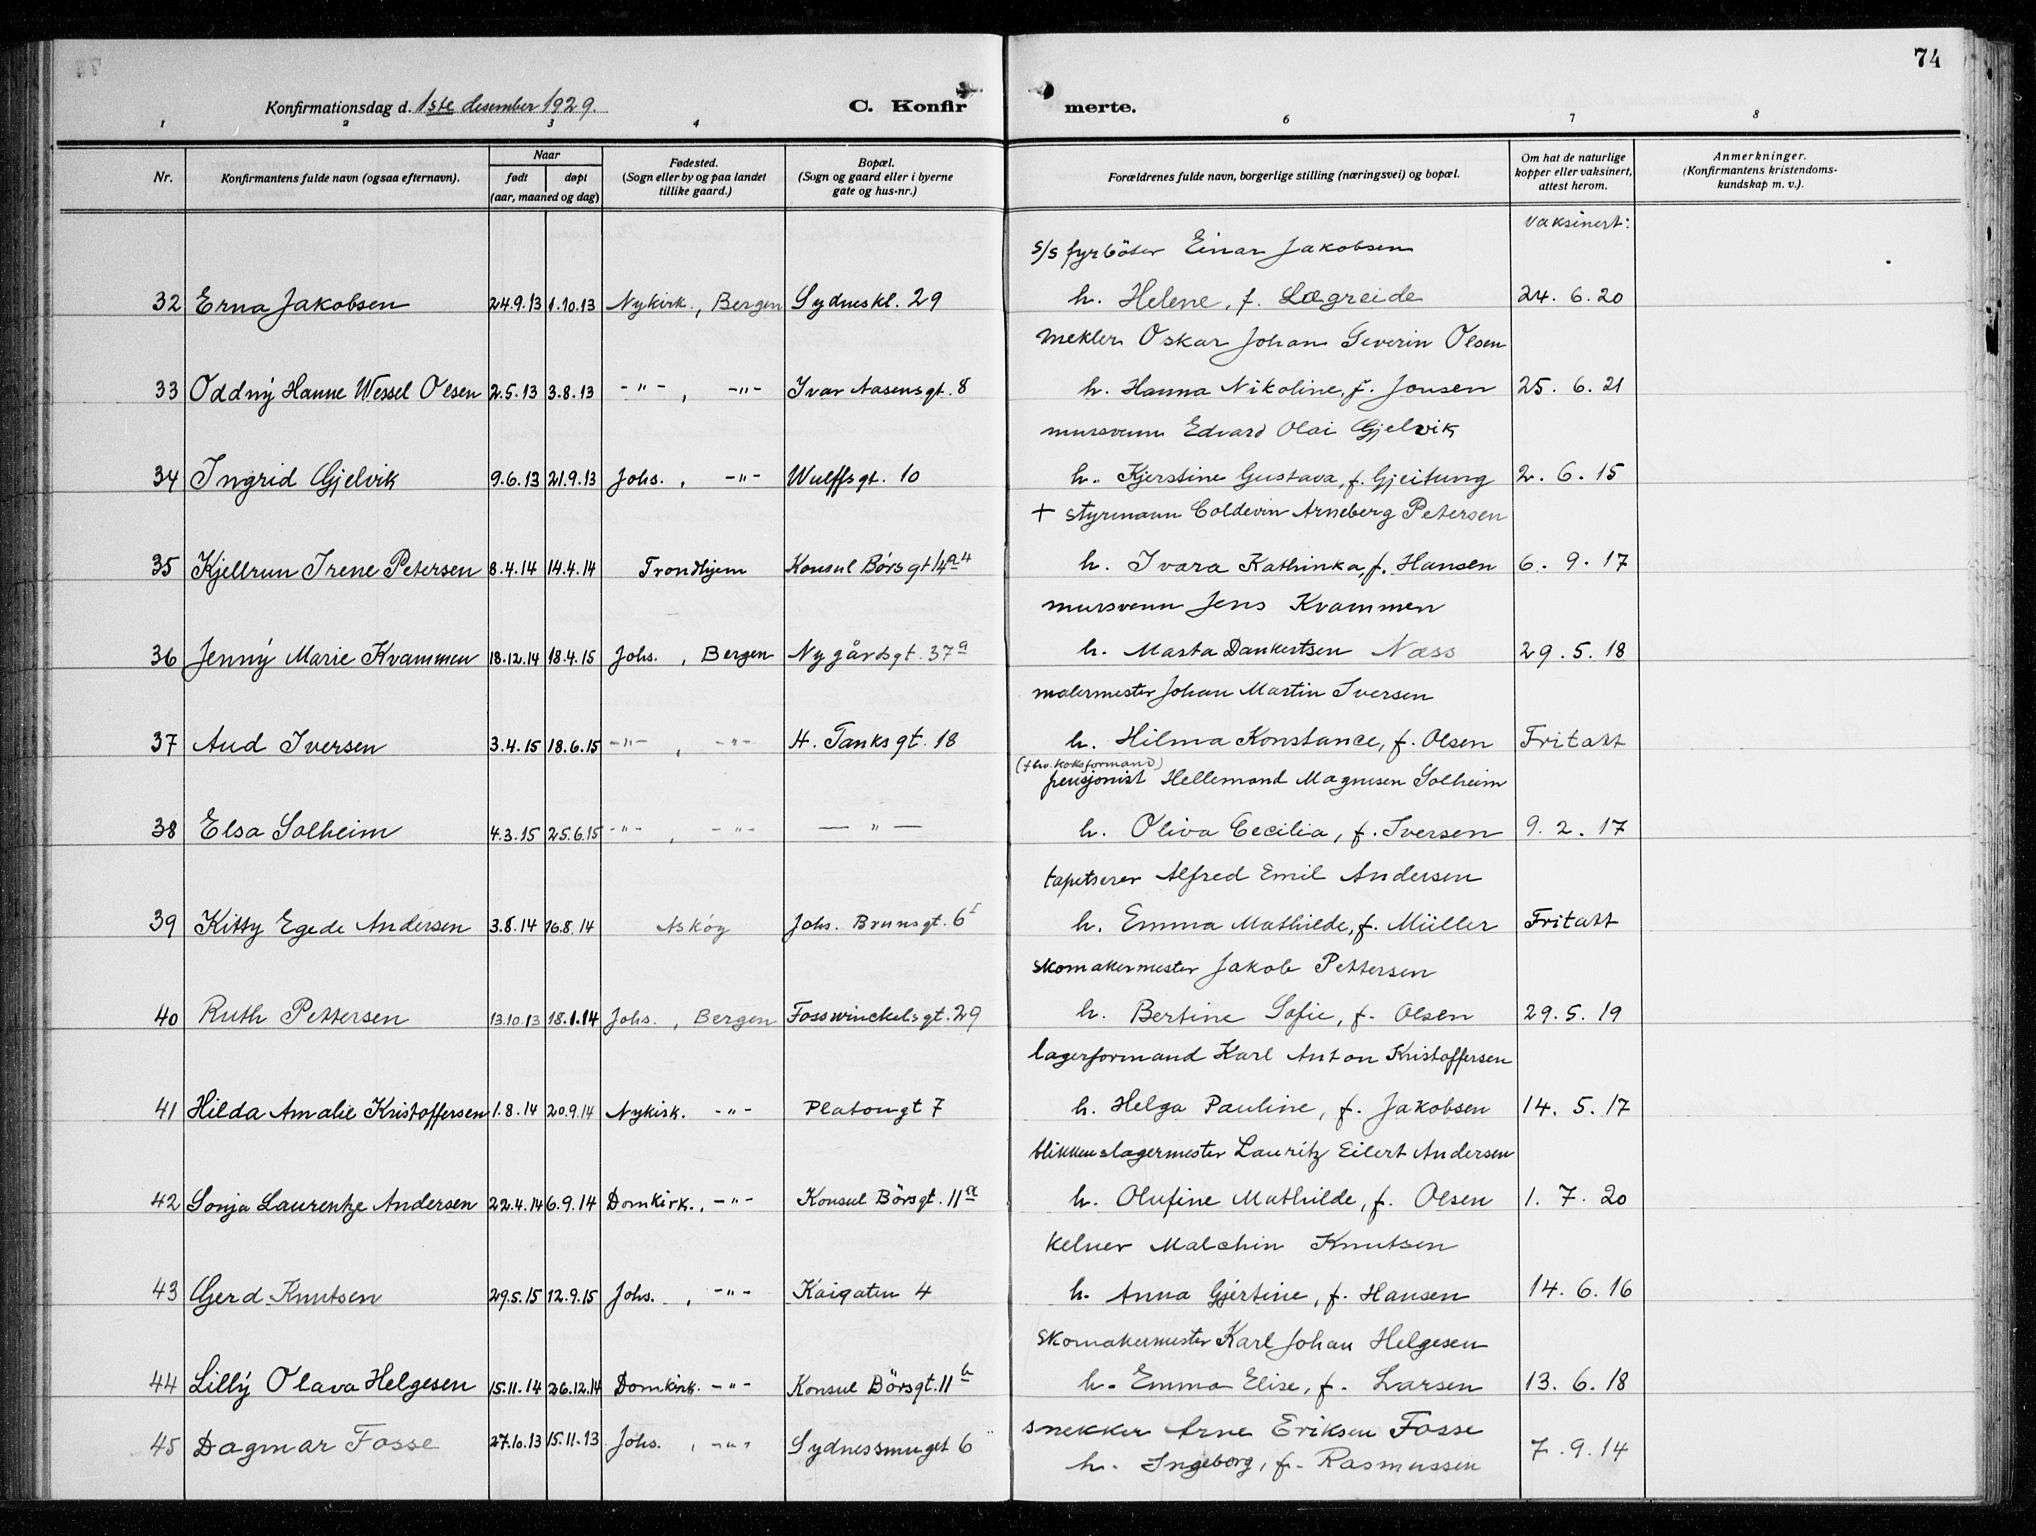 74
Konfirmationsdag d. 1ste desember 1929. C. Konfirmerte.
1 2 3 4 6 7 8
Nr. Konfirmantens fulde navn (ogsaa efternavn). Naar født døpt (aar, maaned og dag) Fødested. (Sogn eller by og paa landet tillike gaard.) Bopæl. (Sogn og gaard eller i byerne gate og hus-nr.) Forældrenes fulde navn, borgerlige stilling (næringsvei) og bopæl. Om hat de naturlige kopper eller vaksinert, attest herom. Anmerkninger. (Konfirmantens kristendoms-kundskap m. v.).
vaksinert:
s/s fyrböter Einar Jakobsen
32 Erna Jakobsen 24.9.13 1.10.13 Nykirk., Bergen Sydneskl. 29 h. Helene, f. Lægreide 24. 6. 20
mekler Oskar Johan Severin Olsen
33 Oddný Hanne Wessel Olsen 2.5.13 3.8.13 -"- , -"- Ivar Aasensgt. 8 h. Hanna Nikoline, f. Jonsen 25. 6. 21
mursvenn Edvard Olai Gjelvik
34 Ingrid Gjelvik 9.6.13 21.9.13 Johs. , -"- Wulffsgt. 10 h. Kjerstine Gustava, f. Gjeitung 2. 6. 15
+ styrmann Coldevin Arneberg Petersen
35 Kjellrun Irene Petersen 8.4.14 14.4.14 Trondhjem Konsul Börsgt 14a 4 h. Ivara Kathinka, f. Hansen 6. 9. 17
mursvenn Jens Kvammen
36 Jenný Marie Kvammen 18.12.14 18.4.15 Johs. , Bergen Nygårdsgt. 37a h. Marta Dankertsen Næss 29. 5. 18
malermester Johan Martin Iversen
37 Aud Iversen 3.4.15 18.6.15 -"- , -"- H. Tanksgt. 18 h. Hilma Konstance, f. Olsen Fritatt
(fhv. koksformand)
pensjonist Hellemand Magnusen Solheim
38 Elsa Solheim 4.3.15 25.6.15 -"- , -"- — " — h. Oliva Cecilia, f. Iversen 9. 2. 17
tapetserer Alfred Emil Andersen
39 Kitty Egede Andersen 3.8.14 16.8.14 Askøy Johs. Brunsgt. 6 I h. Emma Mathilde, f. Müller Fritatt
skomakermester Jakob Pettersen
40 Ruth Pettersen 13.10.13 18.1.14 Johs. , Bergen Fosswinckelsgt. 29 h. Bertine Sofie, f. Olsen 29. 5. 19
lagerformand Karl Anton Kristoffersen
41 Hilda Amalie Kristoffersen 1.8.14 20.9.14 Nykirk. -"- Platougt 7 h. Helga Pauline, f. Jakobsen 14. 5. 17
blikkenslagermester Lauritz Eilert Andersen
42 Sonja Laurentze Andersen 22.4.14 6.9.14 Domkirk., -"- Konsul Börsgt. 11a h. Olufine Mathilde, f. Olsen 1. 7. 20
kelner Malchin Knutsen
43 Gjerd Knutsen 29.5.15 12.9.15 Johs. , -"- Kaigaten 4 h. Anna Gjertine, f. Hansen 14. 6. 16
skomakermester Karl Johan Helgesen
44 Lillý Olava Helgesen 15.11.14 26.12.14 Domkirk. -"- Konsul Börsgt. 11b h. Emma Elise, f. Larsen 13. 6. 18
snekker Arne Eriksen Fosse
45 Dagmar Fosse 27.10.13 15.11.13 Johs. , -"- Sydnessmuget 6 h. Ingeborg, f. Rasmussen 7. 9. 14